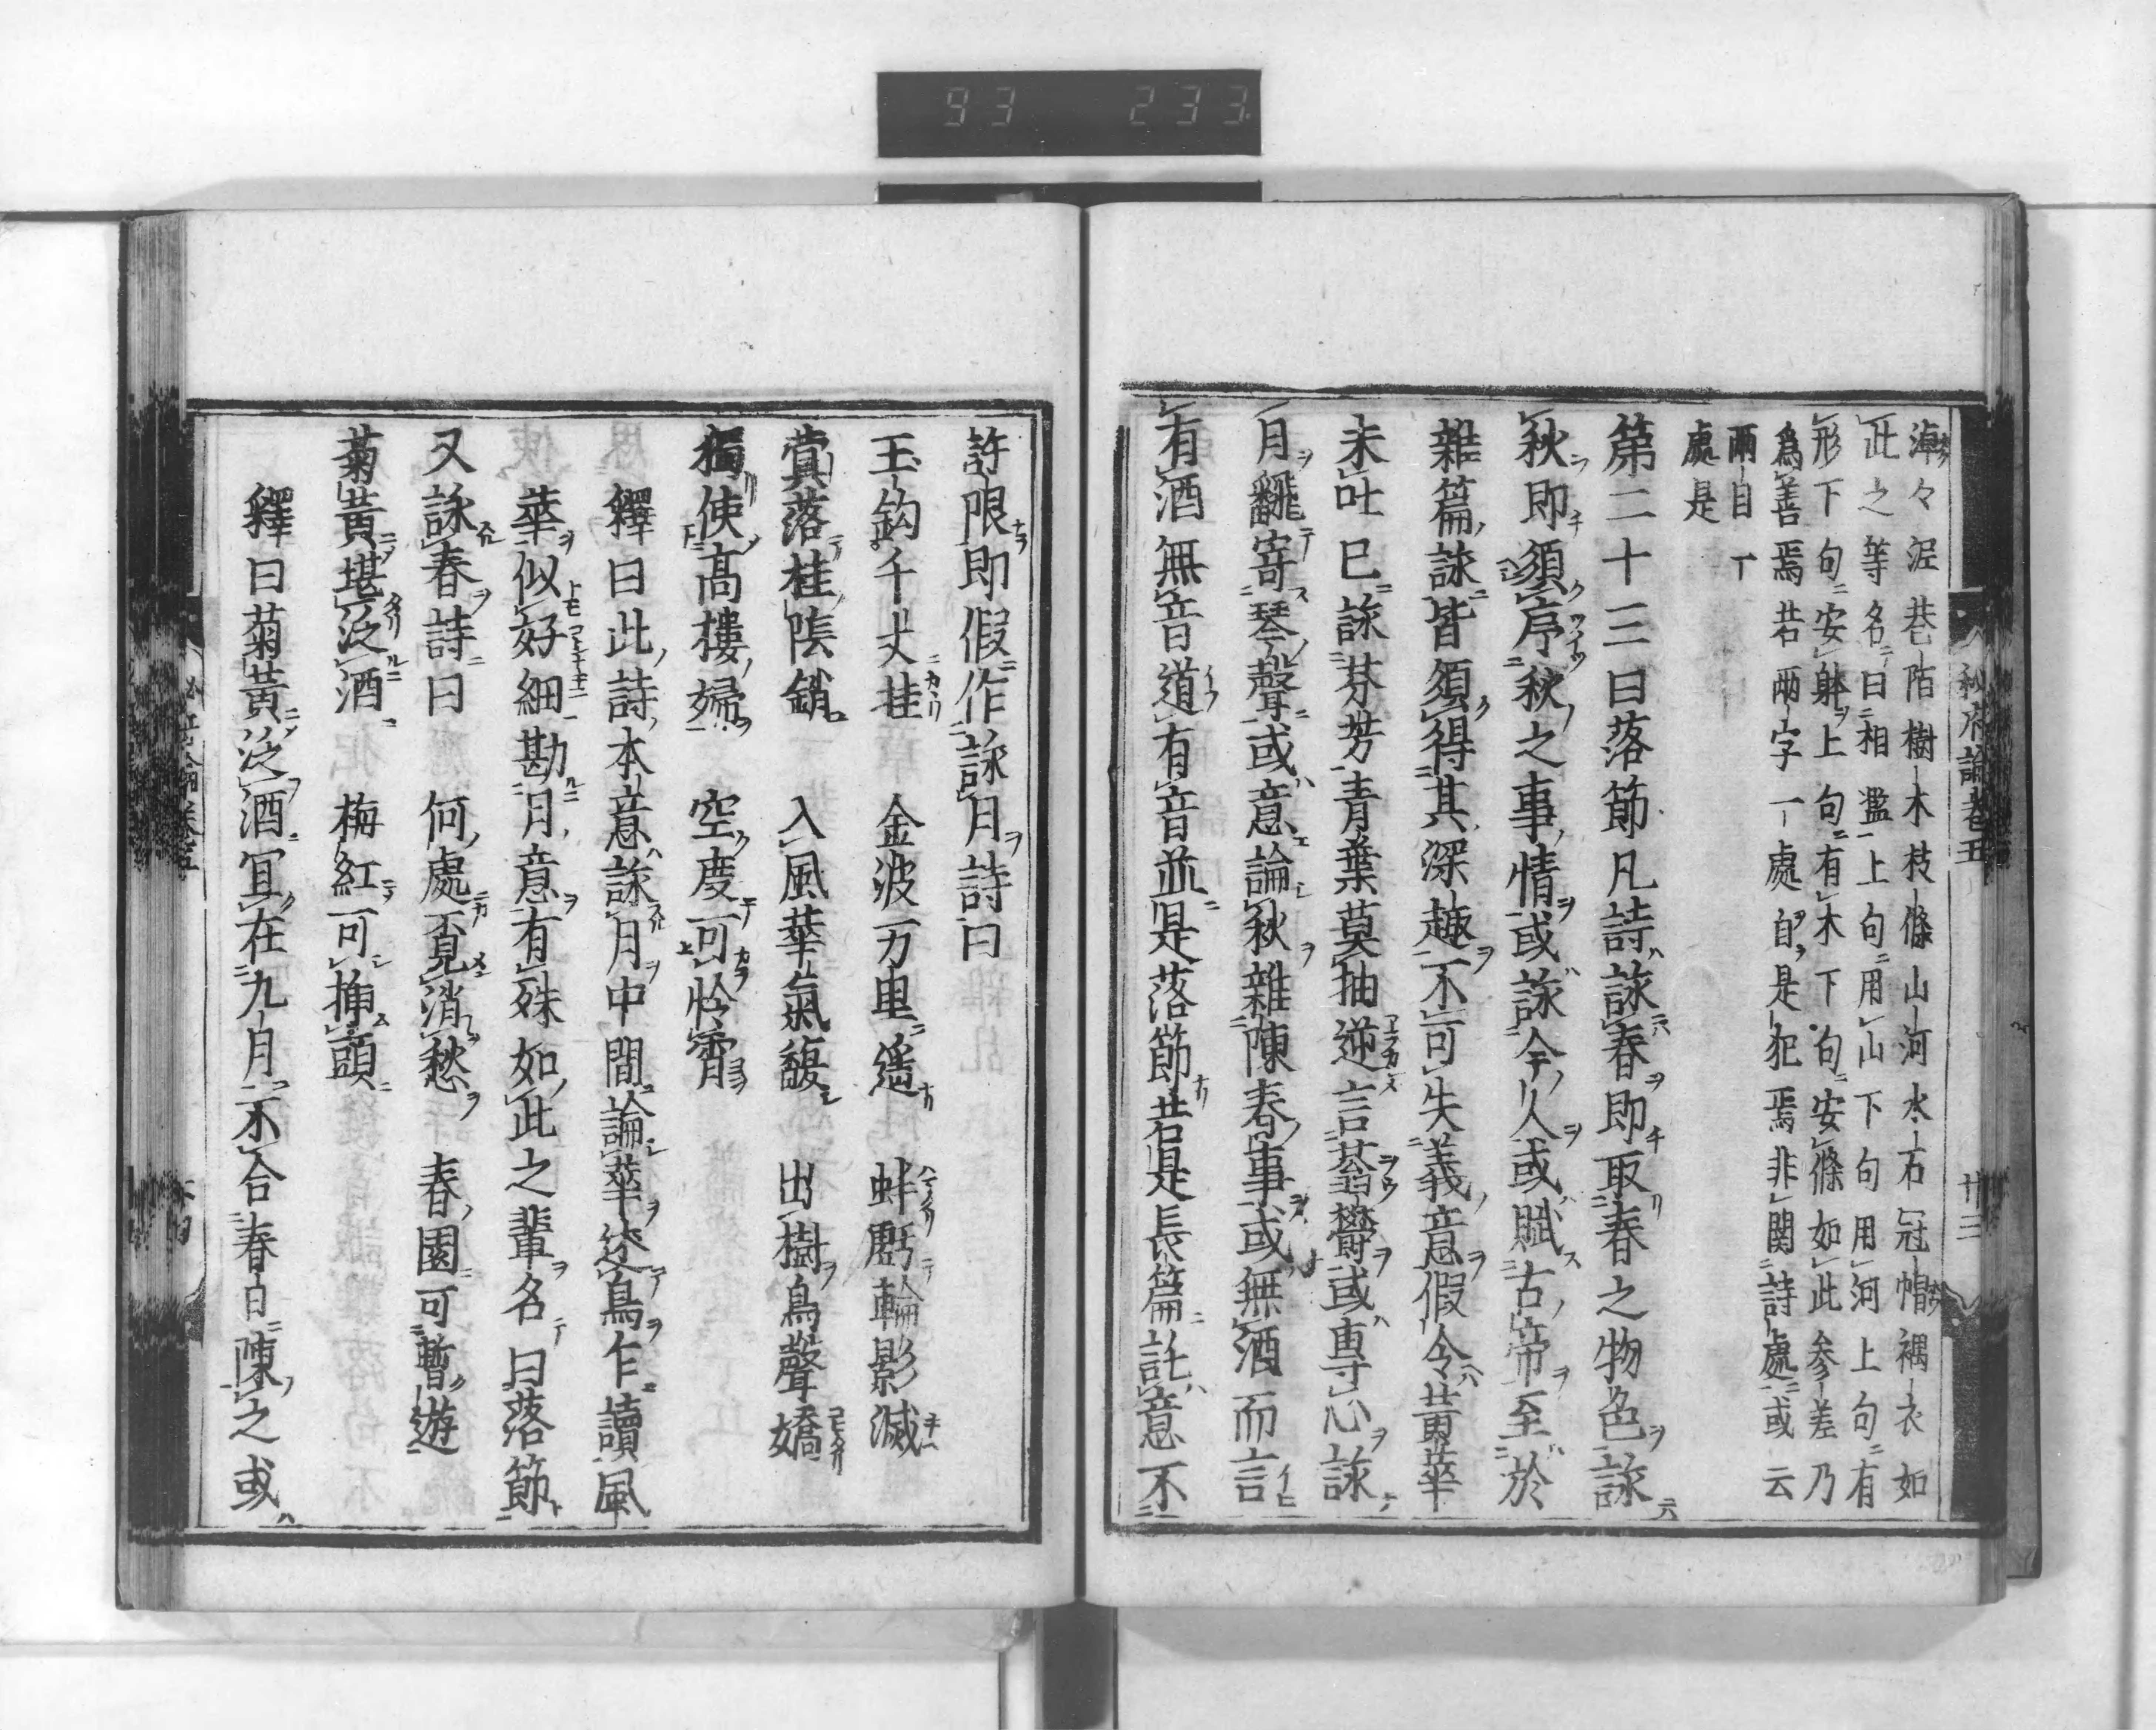 93 233
淖々泥巷陌樹木枝條山河水石冠帽褐衣如
此之等名曰相濫上句用山下句用河上句有
形下句安躰上句有木下句安條如此参差乃
為善焉若兩字一處自是犯焉非関詩處或云
兩目一
處是
第二十三曰落節凡詩詠春即取春之物色詠
秋即須序秋之事情或詠今人或賦古帝至於
雜篇詠皆須得其深趣不可失義意假令黃華
未吐已詠芬芳青葉莫抽逆言蓊欝或專心詠
月翻寄琴聲或意論秋雜陳春事或無酒而言
有酒無音道有音並是落節若是長篇託意不
許限即假作詠月詩曰
玉鈎千丈挂 金波万里遥 蚌虧輪影滅
蓂落桂陰銷 入風華氣馥 出樹鳥聲嬌
獨使高樓婦 空度可怜宵
釋曰此詩本意詠月中間論華迹鳥乍讀風
華似好細勘月意有殊如此之輩名曰落節
又詠春詩曰 何處覔消愁 春園可暫遊
菊黃堪泛酒 梅紅可挿頭
釋曰菊黃泛酒冝在九月不合春日陳之或
秘府論卷五
廿三